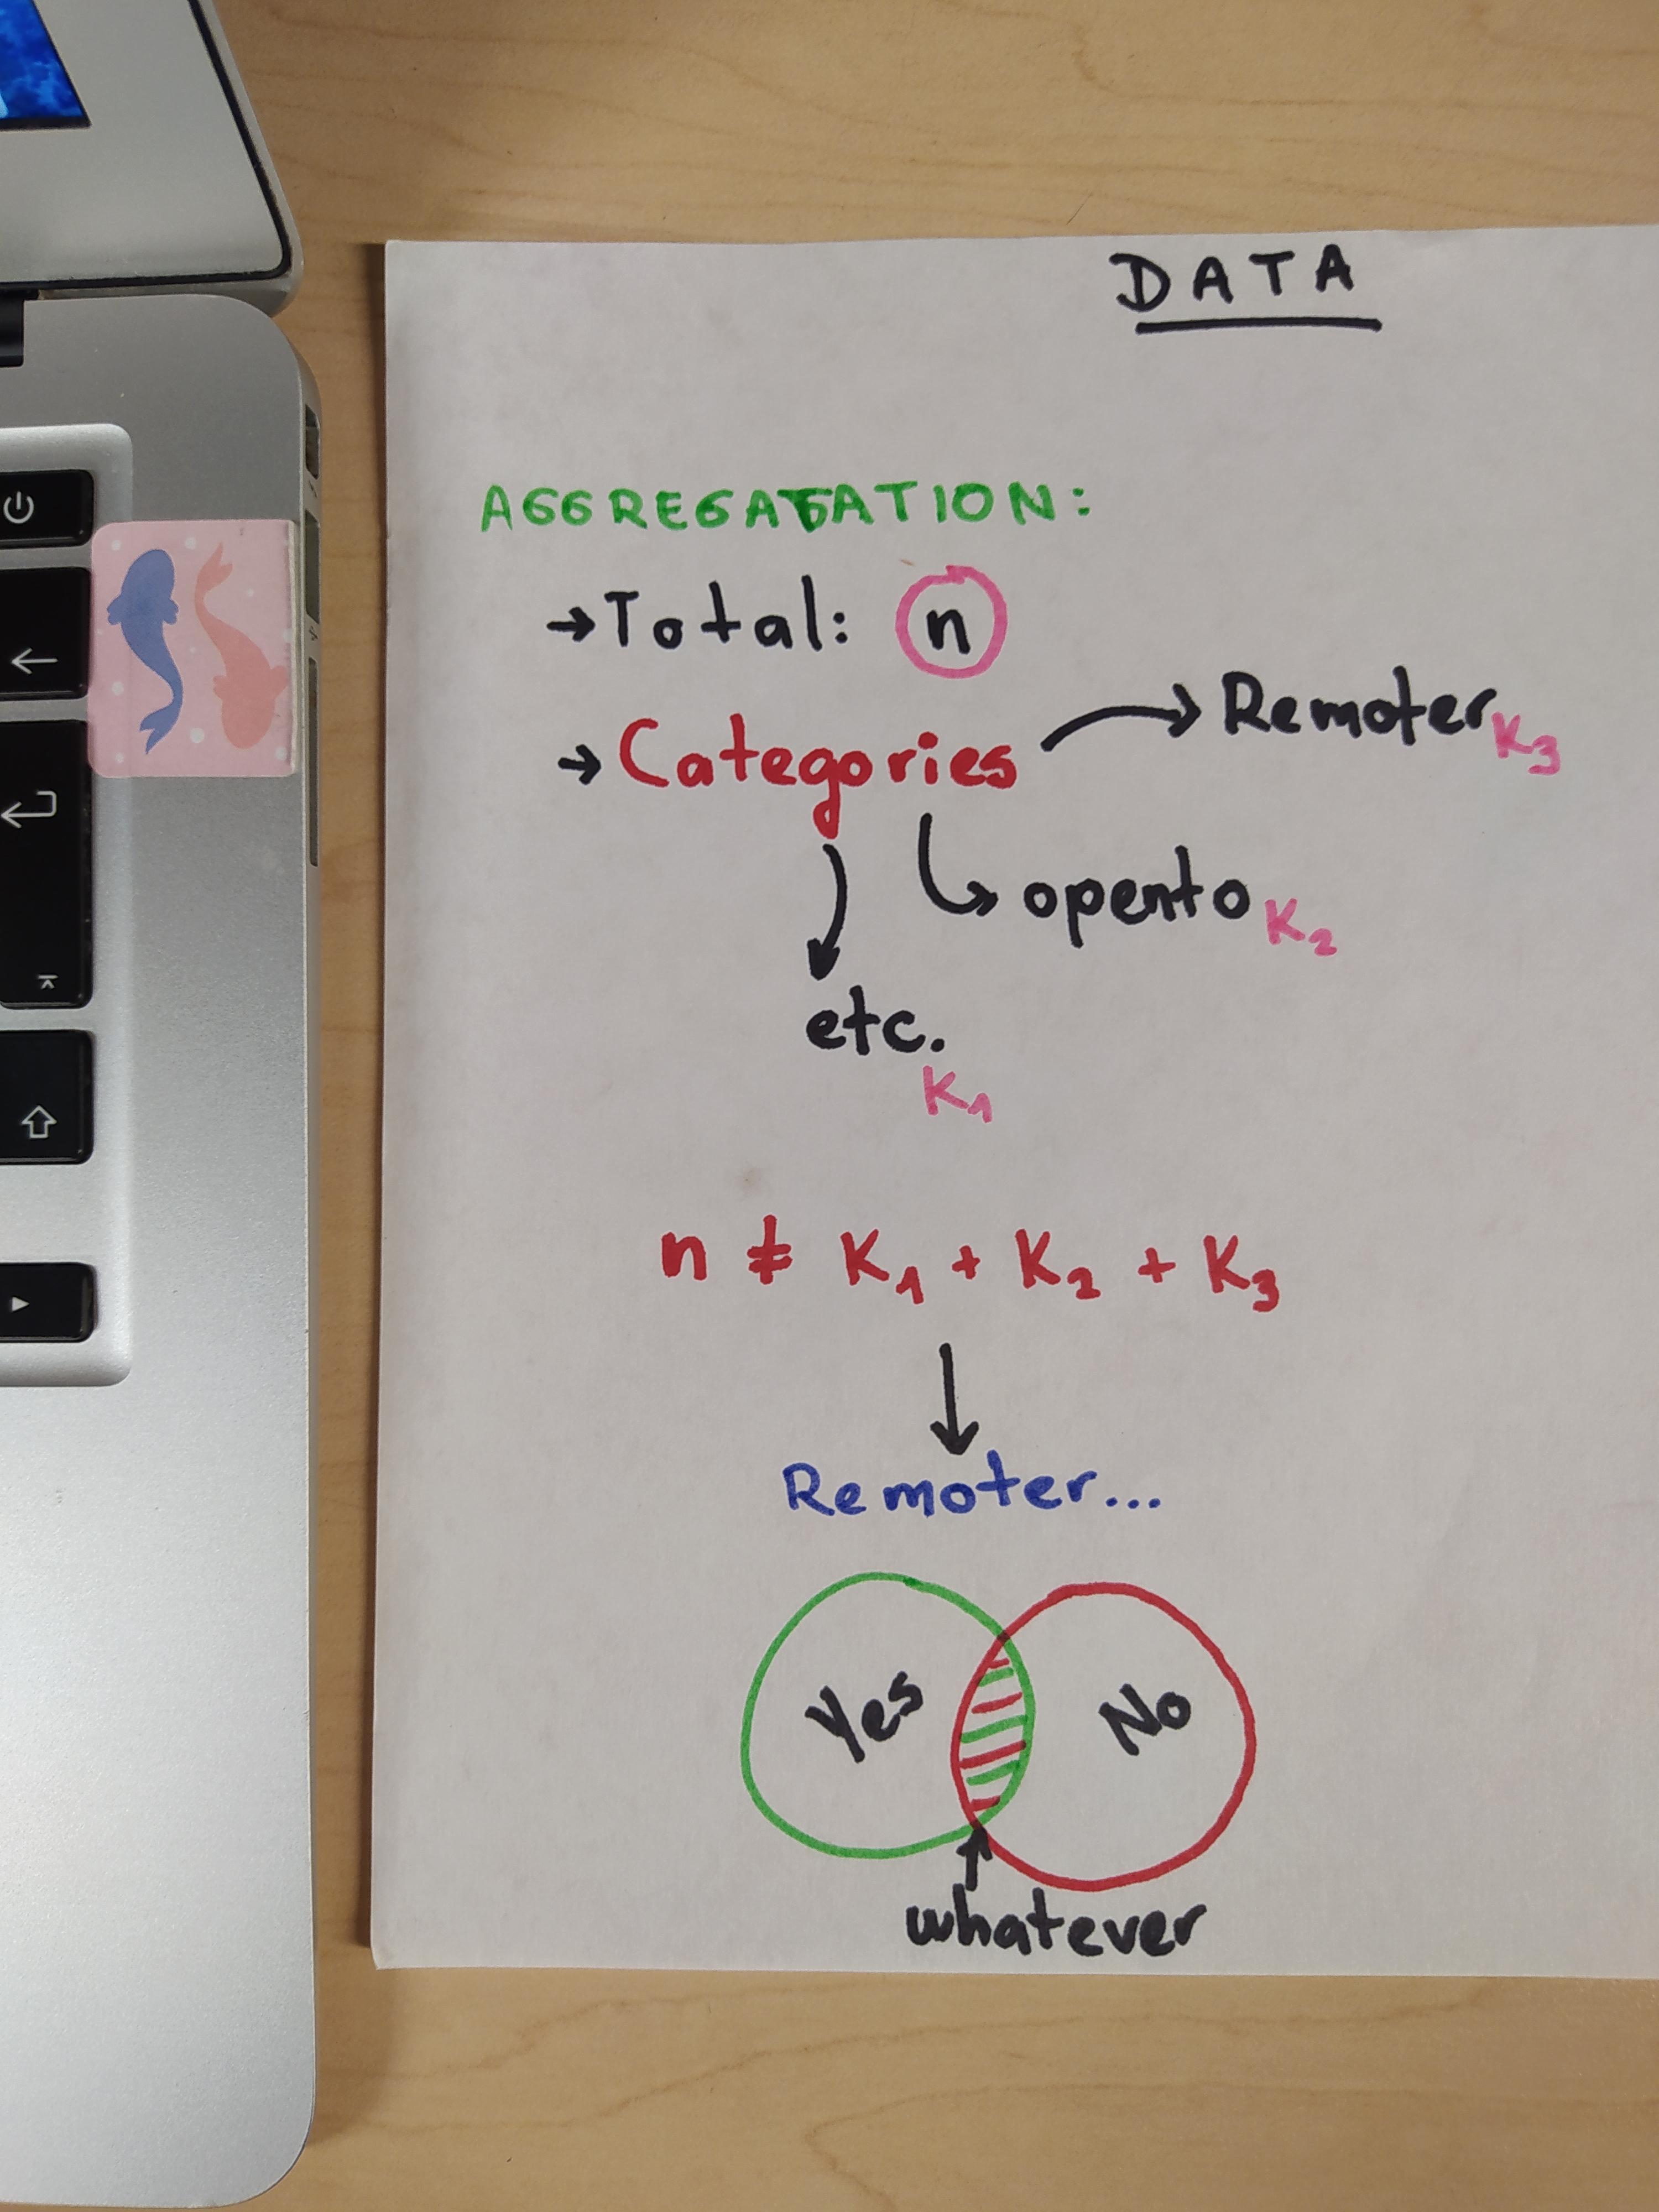 DATA
AGGREGATATION:
→Total: n
→Categories → Remoter K3
opento K2
etc.
K1
n ≠ K1 + K2 + K3
Remoter...
Yes No
whatever